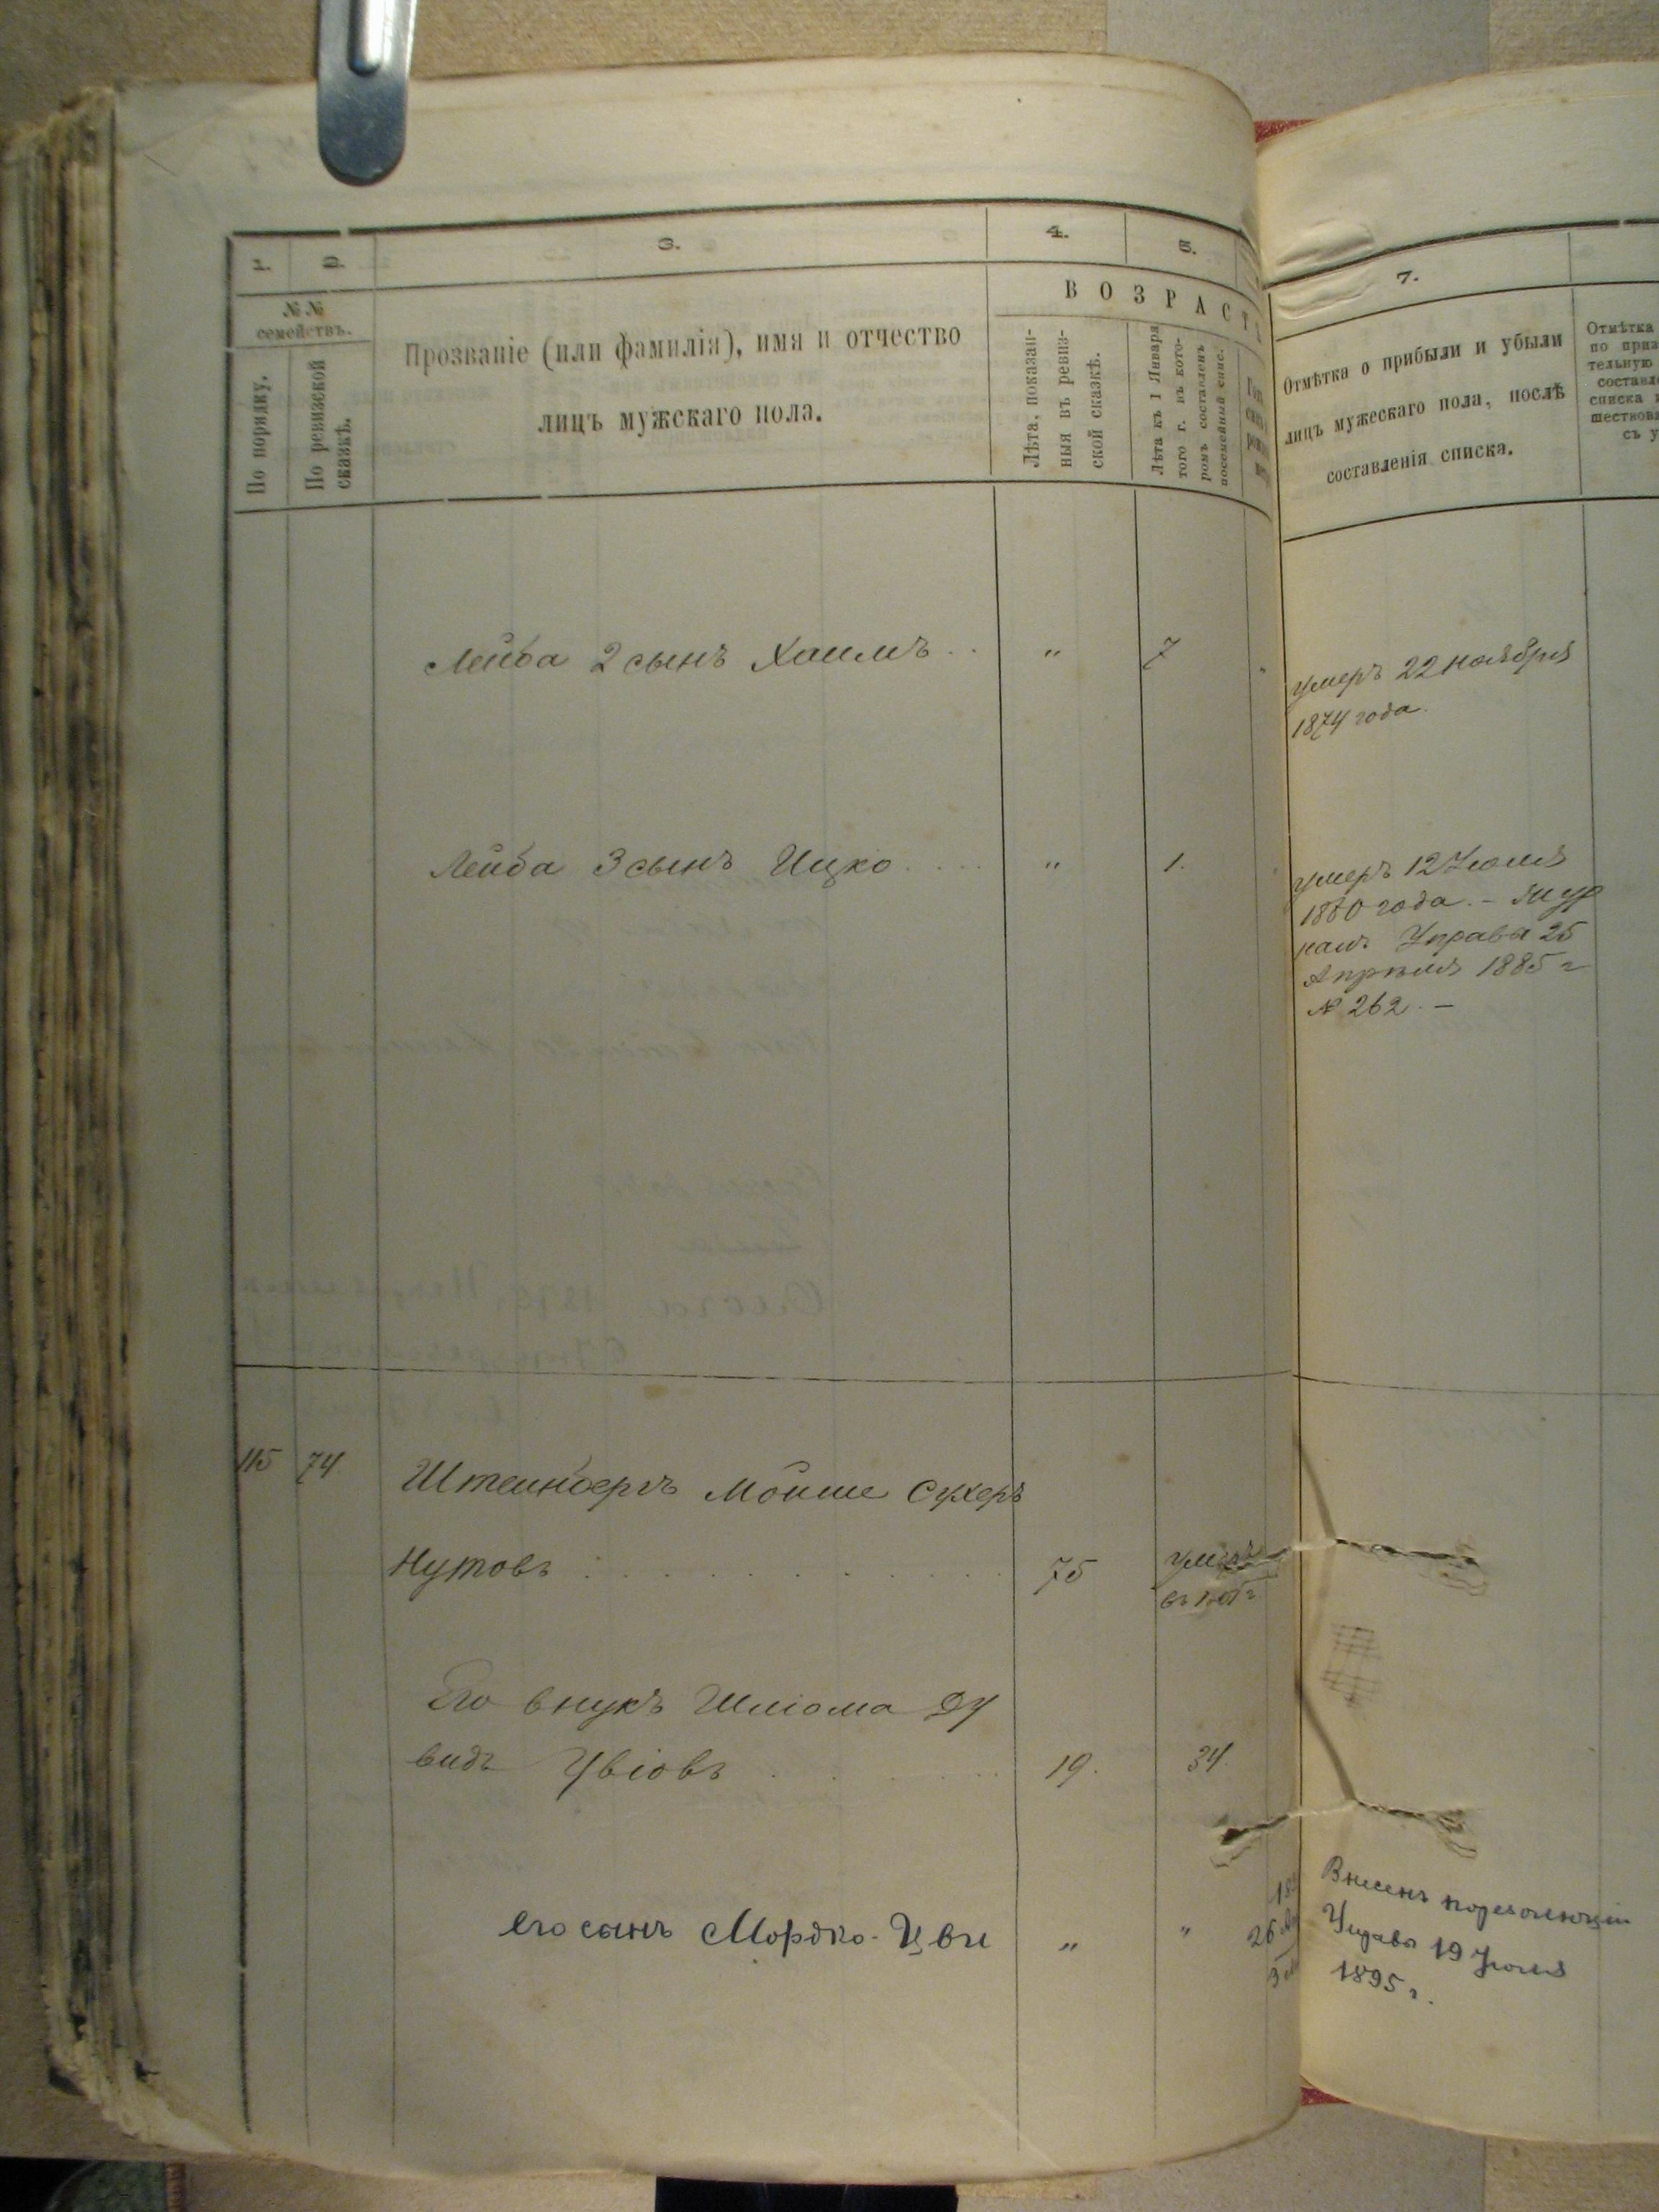 1.
2.
3.
4.
5.
7.
№№
семействъ.
По порядку.
По ревизской
сказкѣ.
Прозваніе (или фамилія), имя и отчество
лицъ мужскаго пола.
ВОЗРАСТЪ
Лѣта, показан-
ныя въ ревиз-
ской сказкѣ.
Лѣта къ 1 Января
того г. въ кото-
ромъ составленъ
посемейный спис.
Отмѣтка о прибыли и убыли
лицъ мужескаго пола, послѣ
составленія списка.
Отмѣтка
по приз
тельную
составл
списка
шествов
съ у
Лейба 2 сынъ Хаимъ . . " 7
умеръ 22 ноября
1874 года.
Лейба 3 сынъ Ицко . . . . " 1.
умеръ 12 Іюля
1880 года. – Жур
налъ Управы 25
Апрѣля 1885 г
№ 262. –
115 74 Штейнбергъ Мойше Сухеръ
Нутовъ . . . . . . . . . . . 75 умеръ
Его внукъ Шліома Ду
видъ Цвіовъ . . . . . 19. 34.
его сынъ Мордко-Цви " " 26
Внесенъ по резолюціи
Управы 19 Іюля
1895 г.